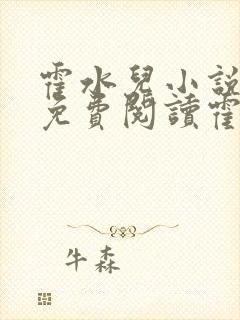 霍水兒小說
免費閱讀霍
牛森